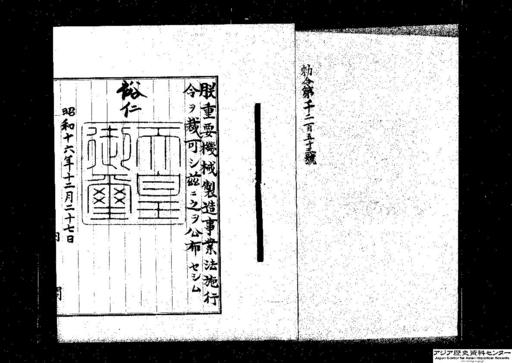 勅令第千二百五十三號
朕重要機械製造事業法施行
令ヲ裁可シ茲ニ之ヲ公布セシム
裕仁
天皇
御璽
昭和十六年十二月二十七日
内閣
アジア歴史資料センター
Japan Center for Asian Historical Records